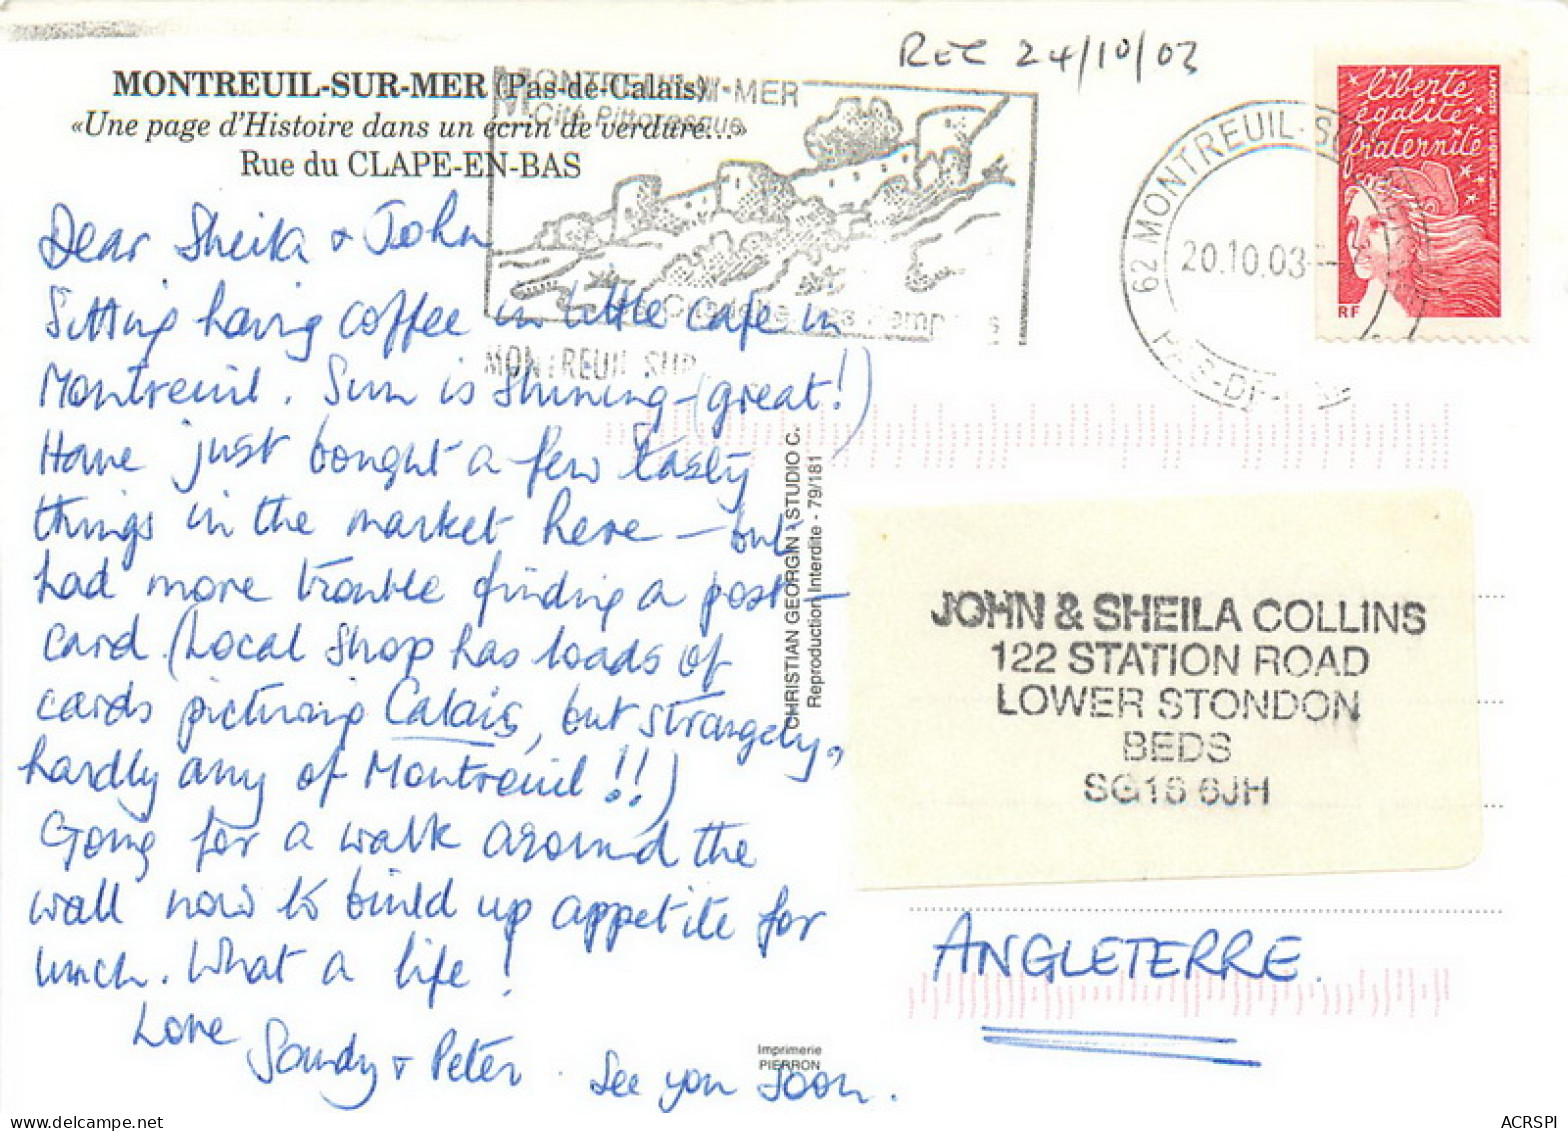 REC 24/10/03
MONTREUIL-SUR-MER (Pas-de-Calais)
«Une page d'Histoire dans un écrin de verdure...»
Rue du CLAPE-EN-BAS
MONTREUIL-SUR-MER
Cité Pittoresque
MONTREUIL SUR
62 MONTREUIL-SUR
20.10.03
PAS-DE-
liberté
égalité
fraternité
RF
LA POSTE
Dear Sheila & John
Sitting having coffee in little cafe in
Montreuil. Sun is shining - (great!)
Have just bought a few tasty
things in the market here - but
had more trouble finding a post-
card. (Local shop has loads of
cards picturing Calais, but strangely,
hardly any of Montreuil!!)
Going for a walk around the
wall now to build up appetite for
lunch. What a life!
Love
Sandy & Peter. See you soon.
CHRISTIAN GEORGIN - STUDIO C.
Reproduction Interdite - 79/181
Imprimerie
PIERRON
JOHN & SHEILA COLLINS
122 STATION ROAD
LOWER STONDON
BEDS
SG16 6JH
ANGLETERRE.
www.delcampe.net
ACRSPI